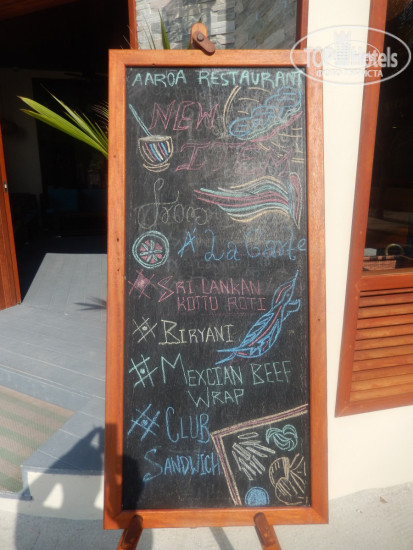 AAROA RESTAURANT
NEW
ITEM
From
A La Carte
# SRI LANKAN
KOTTU ROTI
# BIRYANI
# MEXCIAN BEEF
WRAP
# CLUB
SANDWICH
TOPHotels